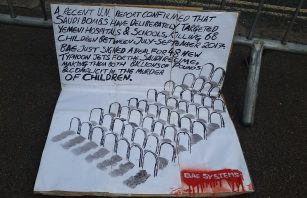 A RECENT U.N. REPORT CONFIRMED THAT
SAUDI BOMBS HAVE DELIBERATELY TARGETED
YEMENI HOSPITALS & SCHOOLS, KILLING 68
CHILDREN BETWEEN JULY-SEPTEMBER 2017
BAE JUST SIGNED A DEAL FOR 48 NEW
TYPHOON JETS FOR THE SAUDI REGIME,
MAKING THEM BOTH BILLIONS OF POUNDS
& COMPLICIT IN THE MURDER
OF CHILDREN.
BAE SYSTEMS